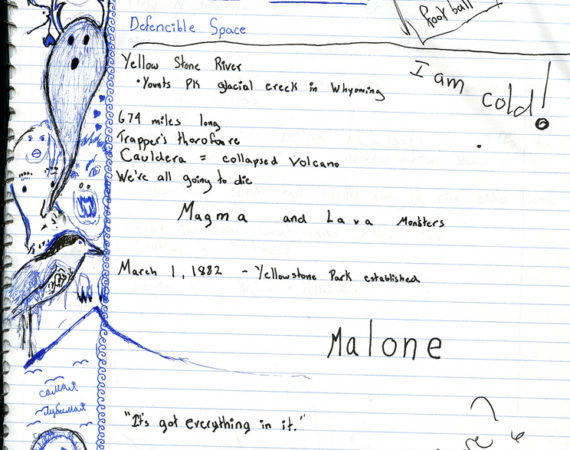 football
Defencible Space
Yellow Stone River
•Younts PK glacial creek in Whyoming
I am cold!
674 miles long
Trapper's thorofoare
Cauldera = collapsed volcano
We're all going to die
Magma and Lava Monsters
March 1, 1882 - Yellowstone Park established
Malone
самая
любимая
"It's got everything in it."